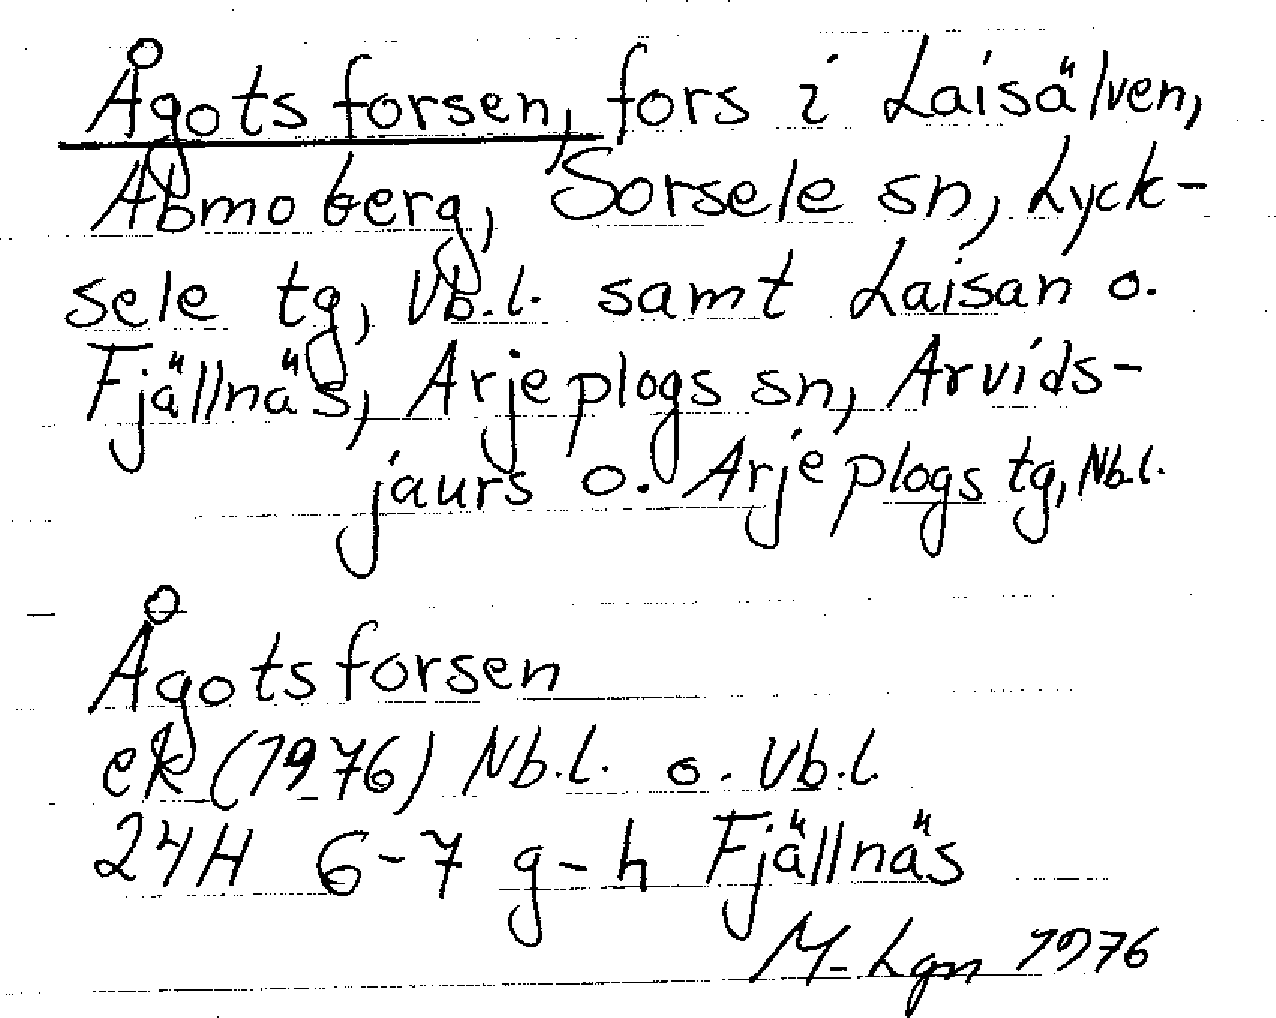 Ågotsforsen, fors i Laisälven,
Abmoberg, Sorsele sn, Lyck-
sele tg, Vb.l. samt Laisan o.
Fjällnäs, Arjeplogs sn, Arvids-
jaurs o. Arjeplogs tg, Nb.l.
Ågotsforsen
ek (1976) Nb.l. o. Vb.l.
24H 6-7 g-h Fjällnäs
M-Lgn 1976